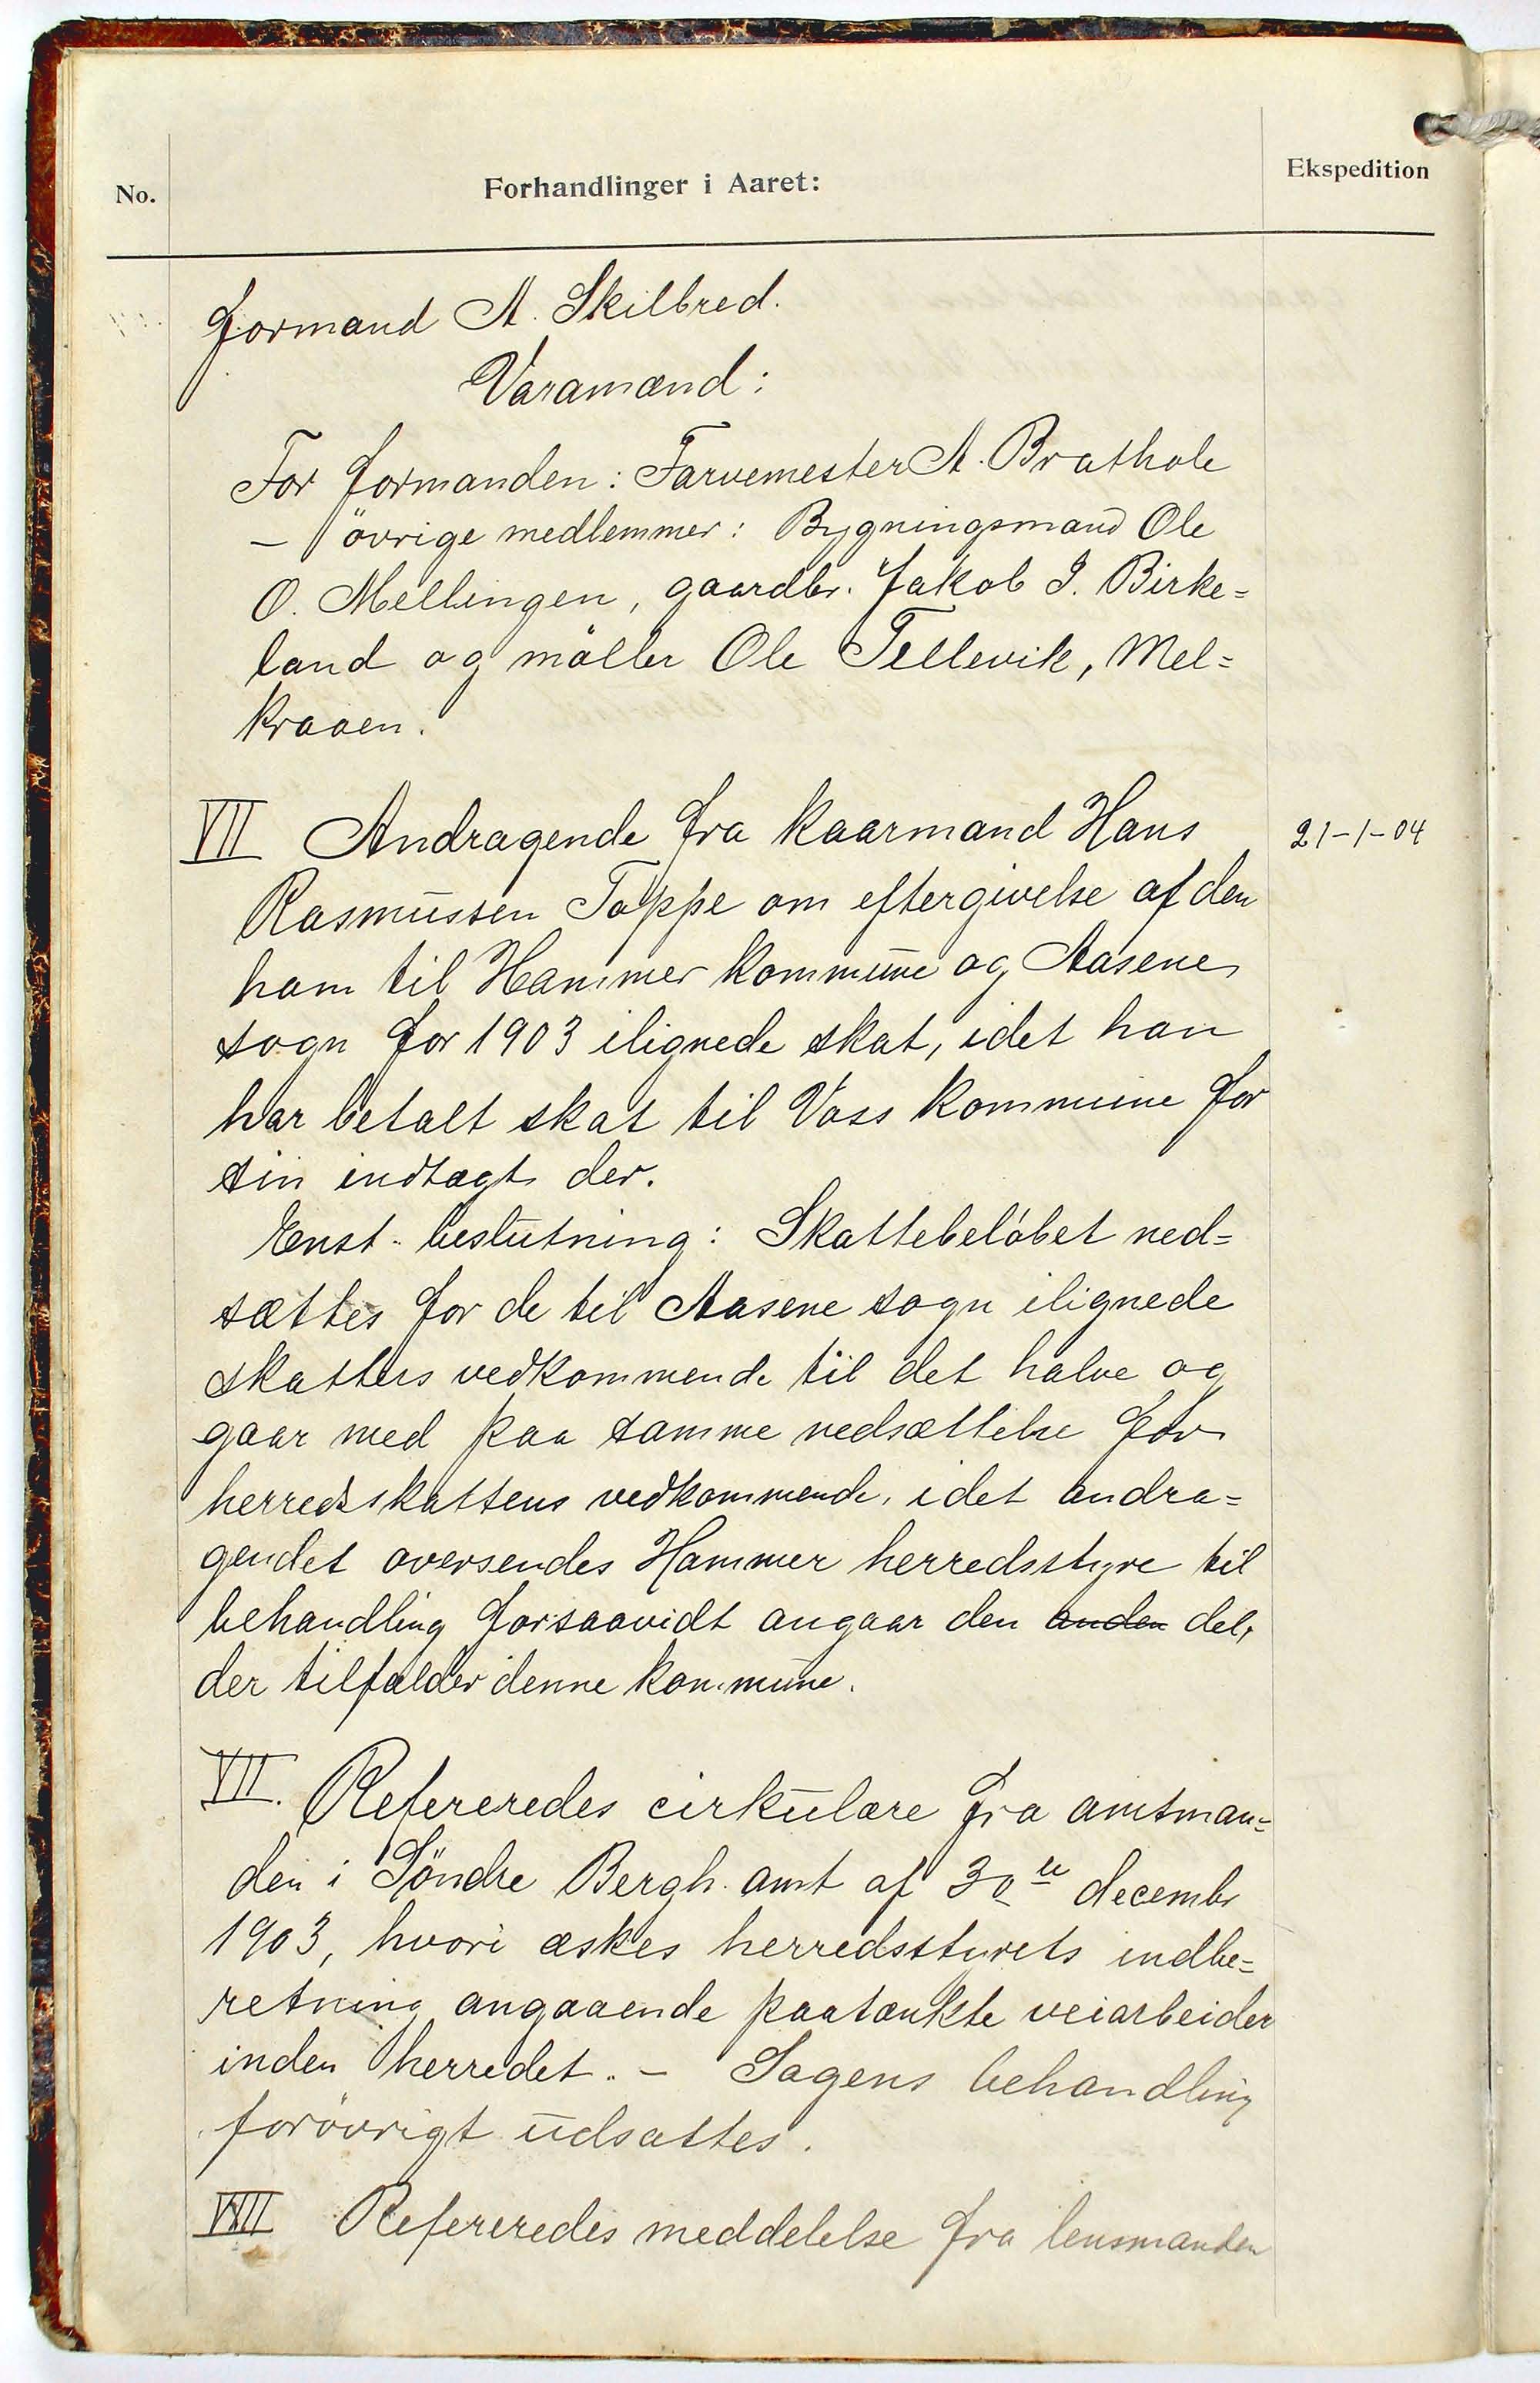 No.
Forhandlinger i Aaret:
Ekspedition
formand A. Skilbred.
Varamænd:
For formanden: Farvemester A. Brathole
— övrige medlemmer: Bygningsmand Ole
O. Mellingen, gaardbr. Jakob J. Birke=
land og möller Ole Tellevik, Mel=
kraaen.
VII Andragende fra kaarmand Hans
21-1-04
Rasmussen Toppe om eftergivelse af den
ham til Hammer kommune og Aasene
sogn for 1903 ilignede skat, idet han
har betalt skat til Voss kommune for
sin indtægt der.
Enst. beslutning: Skattebelöbet ned=
sættes for de til Aasene sogn ilignede
skatters vedkommende til det halve og
gaar med paa samme nedsættelse for
herredsskattens vedkommende, idet andra=
gendet oversendes Hammer herredsstyre til
behandling forsaavidt angaar den anden del,
der tilfalder denne kommune.
VII. Refereredes cirkulære fra amtman=
den i Söndre Bergh. amt af 30te decembr
1903, hvori æskes herredsstyrets indbe=
retning angaaende paatænkte veiarbeider
inden herredet. — Sagens behandling
forövrigt udsattes.
VIII Refereredes meddelelse fra lensmanden